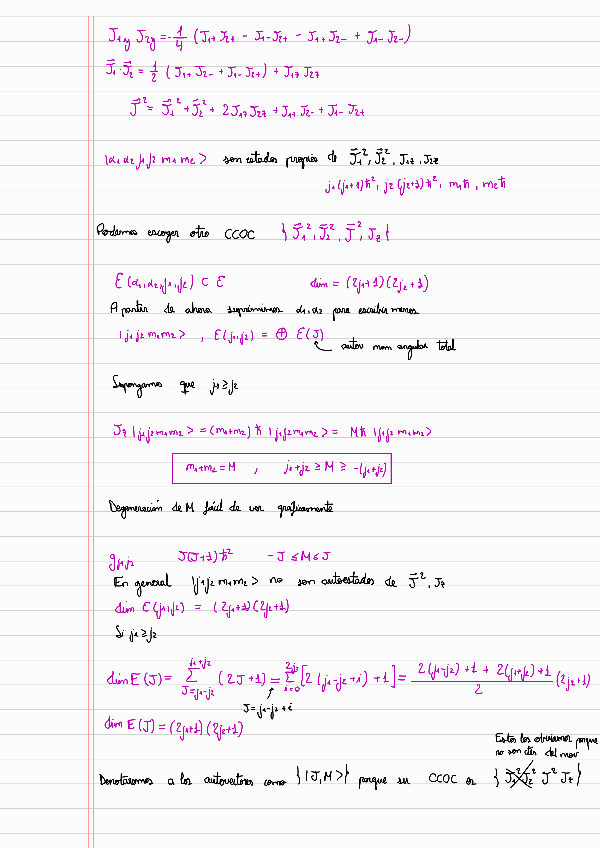 J₁y J₂y = -1/4 (J₁₊J₂₊ - J₁₋J₂₊ - J₁₊J₂₋ + J₁₋J₂₋)
J⃗₁·J⃗₂ = 1/2 (J₁₊J₂₋ + J₁₋J₂₊) + J₁z J₂z
J⃗² = J⃗₁² + J⃗₂² + 2J₁z J₂z + J₁₊ J₂₋ + J₁₋ J₂₊
|α₁ α₂ j₁ j₂ m₁ m₂> son estados propios de J⃗₁², J⃗₂², J₁z, J₂z
j₁(j₁+1)ħ², j₂(j₂+1)ħ², m₁ħ, m₂ħ
Podemos escoger otro CCOC { J⃗₁², J⃗₂², J⃗², Jz }
E(α₁,α₂,j₁,j₂) ⊂ E dim = (2j₁+1)(2j₂+1)
A partir de ahora suprimimos α₁,α₂ para escribir menos
|j₁ j₂ m₁ m₂> , E(j₁,j₂) = ⊕ E(J)
autov mom angular total
Supongamos que j₁ ≥ j₂
Jz |j₁ j₂ m₁ m₂> = (m₁+m₂) ħ |j₁ j₂ m₁ m₂> = Mħ |j₁ j₂ m₁ m₂>
m₁+m₂ = M , j₁+j₂ ≥ M ≥ -(j₁+j₂)
Degeneración de M fácil de ver gráficamente
g j₁ j₂ J(J+1)ħ² -J ≤ M ≤ J
En general |j₁ j₂ m₁ m₂> no son autoestados de J⃗², Jz
dim E(j₁,j₂) = (2j₁+1)(2j₂+1)
Si j₁ ≥ j₂
dim E(J) = Σ_{J=j₁-j₂}^{j₁+j₂} (2J+1) = Σ_{i=0}^{2j₂} [2(j₁-j₂+i)+1] = (2(j₁-j₂)+1 + 2(j₁+j₂)+1)/2 (2j₂+1)
J=j₁-j₂+i
dim E(J) = (2j₁+1)(2j₂+1)
Estos los obviamos porque
no son ctes del mov
Denotaremos a los autovectores como {|J,M>} porque su CCOC es { J₁² J₂² J² Jz }